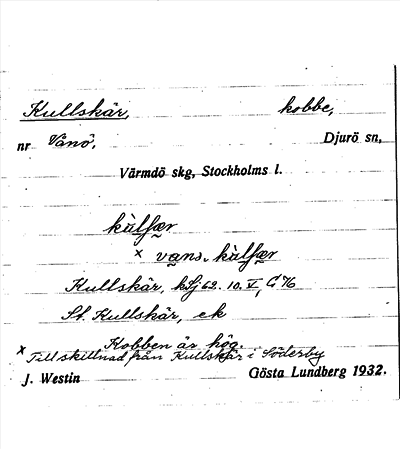 Kullskär, kobbe,
nr Vånö, Djurö sn,
Värmdö skg, Stockholms l.
kùlʃær
× vans. kùlʃær
Kullskär, kSj 62. 10. V, G%
St. Kullskär, ek
Kobben är hög.
× Till skillnad från Kullskär i Söderby
J. Westin Gösta Lundberg 1932.